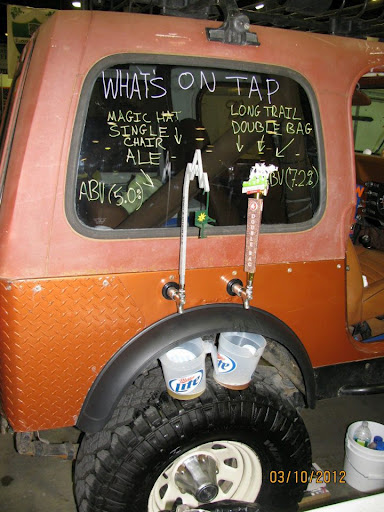 WHAT'S ON TAP
MAGIC HAT
SINGLE
CHAIR
ALE
ABV (5.0%)
LONG TRAIL
DOUBLE BAG
ABV (7.2%)
DOUBLE BAG
Lite
Lite
03/10/2012